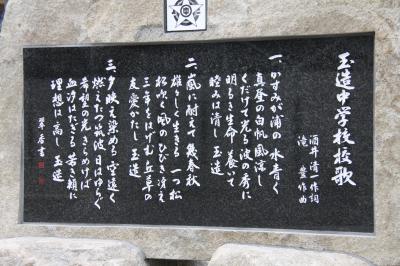 玉造中学校校歌
酒井清一作詞
滝豊作曲
一、かすみが浦の水青く
真昼の白帆風涼し
くだけて光る波の秀に
明るき生命養いて
睦みは清し玉造
二、嵐に耐えて幾春秋
雄々しく生きる一つ松
松吹く風のひびき冴え
三年をはげむ丘草の
友愛かたし玉造
三、夕映え染める空遠く
燃えたつ筑波日はゆらぐ
希望の光きらめけば
血汐はたぎる若き頬に
理想は高し玉造